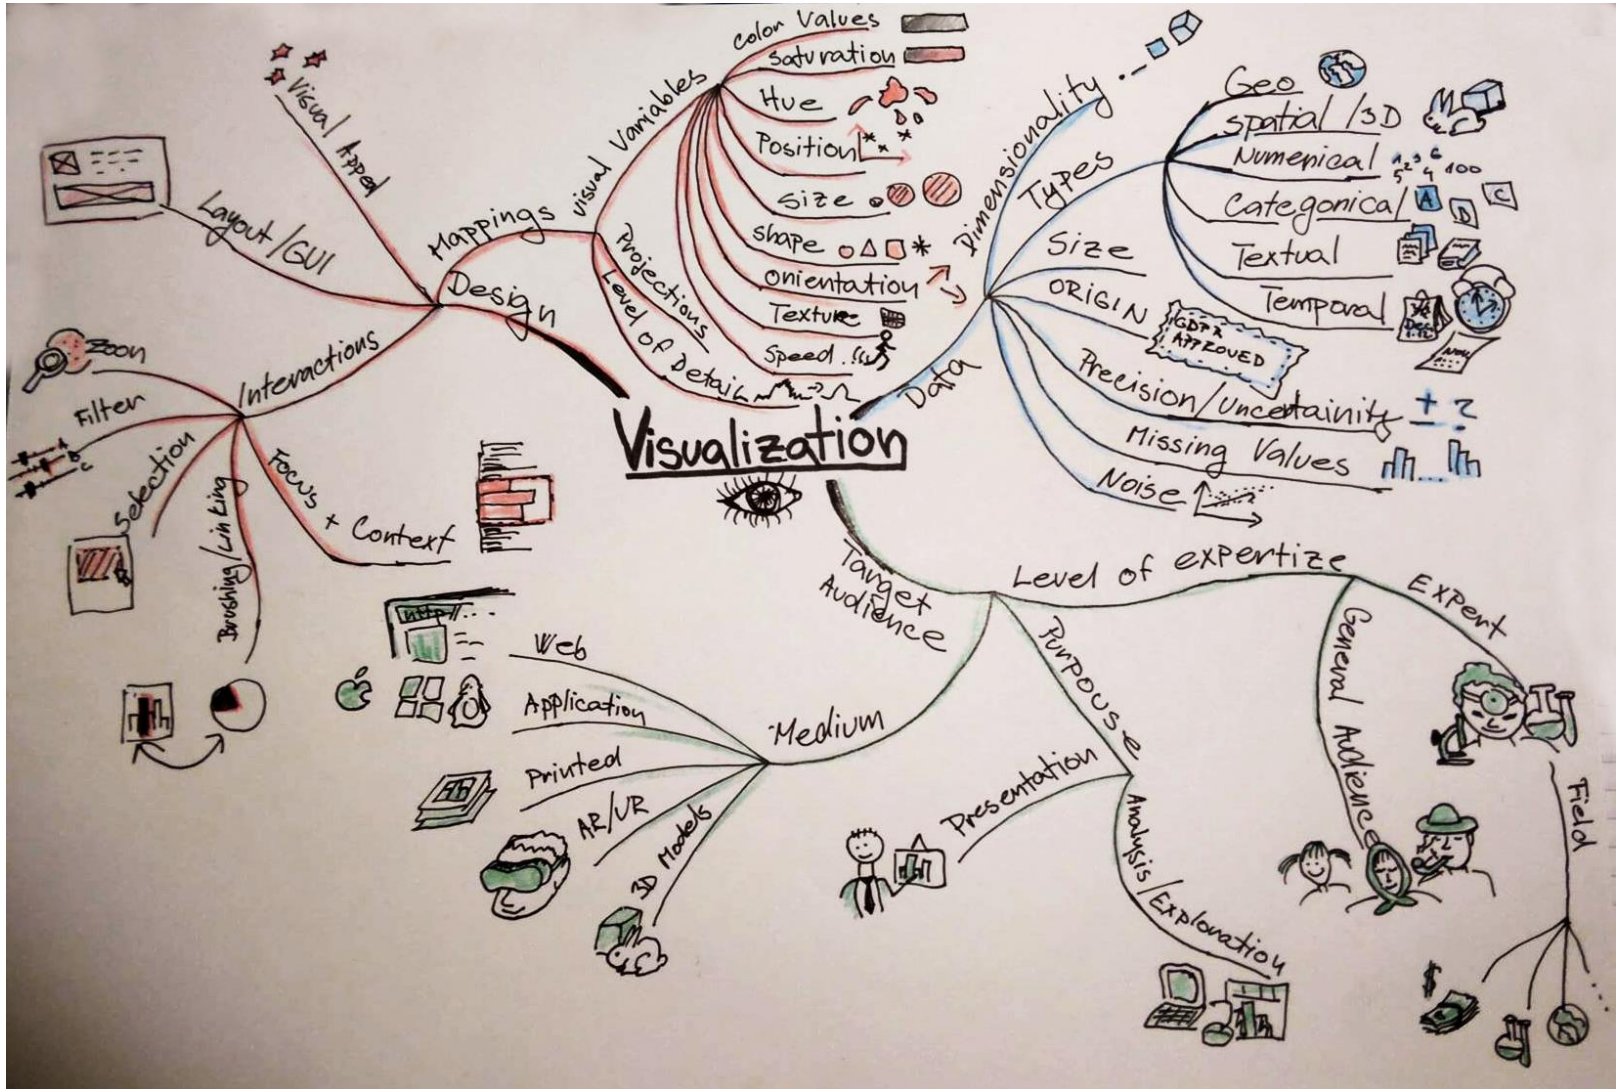 Visualization
Design
Mappings
Visual Variables
color Values
saturation
Hue
Position
Size
shape
orientation
Texture
Speed
Projections
Level of Detail
Visual Appeal
Layout/GUI
Interactions
Zoom
Filter
A
B
C
Selection
Brushing/Linking
Focus + Context
Data
Dimensionality
Types
Geo
Spatial /3D
Numerical
1 2 3 6
5 4 100
Categorical
A
B
C
Textual
Temporal
Dec
NOV
Size
ORIGIN
GDPR
APPROVED
Precision/Uncertainity
+ ?
Missing Values
Noise
Target
Audience
Level of expertize
Expert
Field
$
General Audience
Purpouse
Presentation
Analysis/Exploration
Medium
Web
http//...
Application
Printed
AR/VR
3D Models